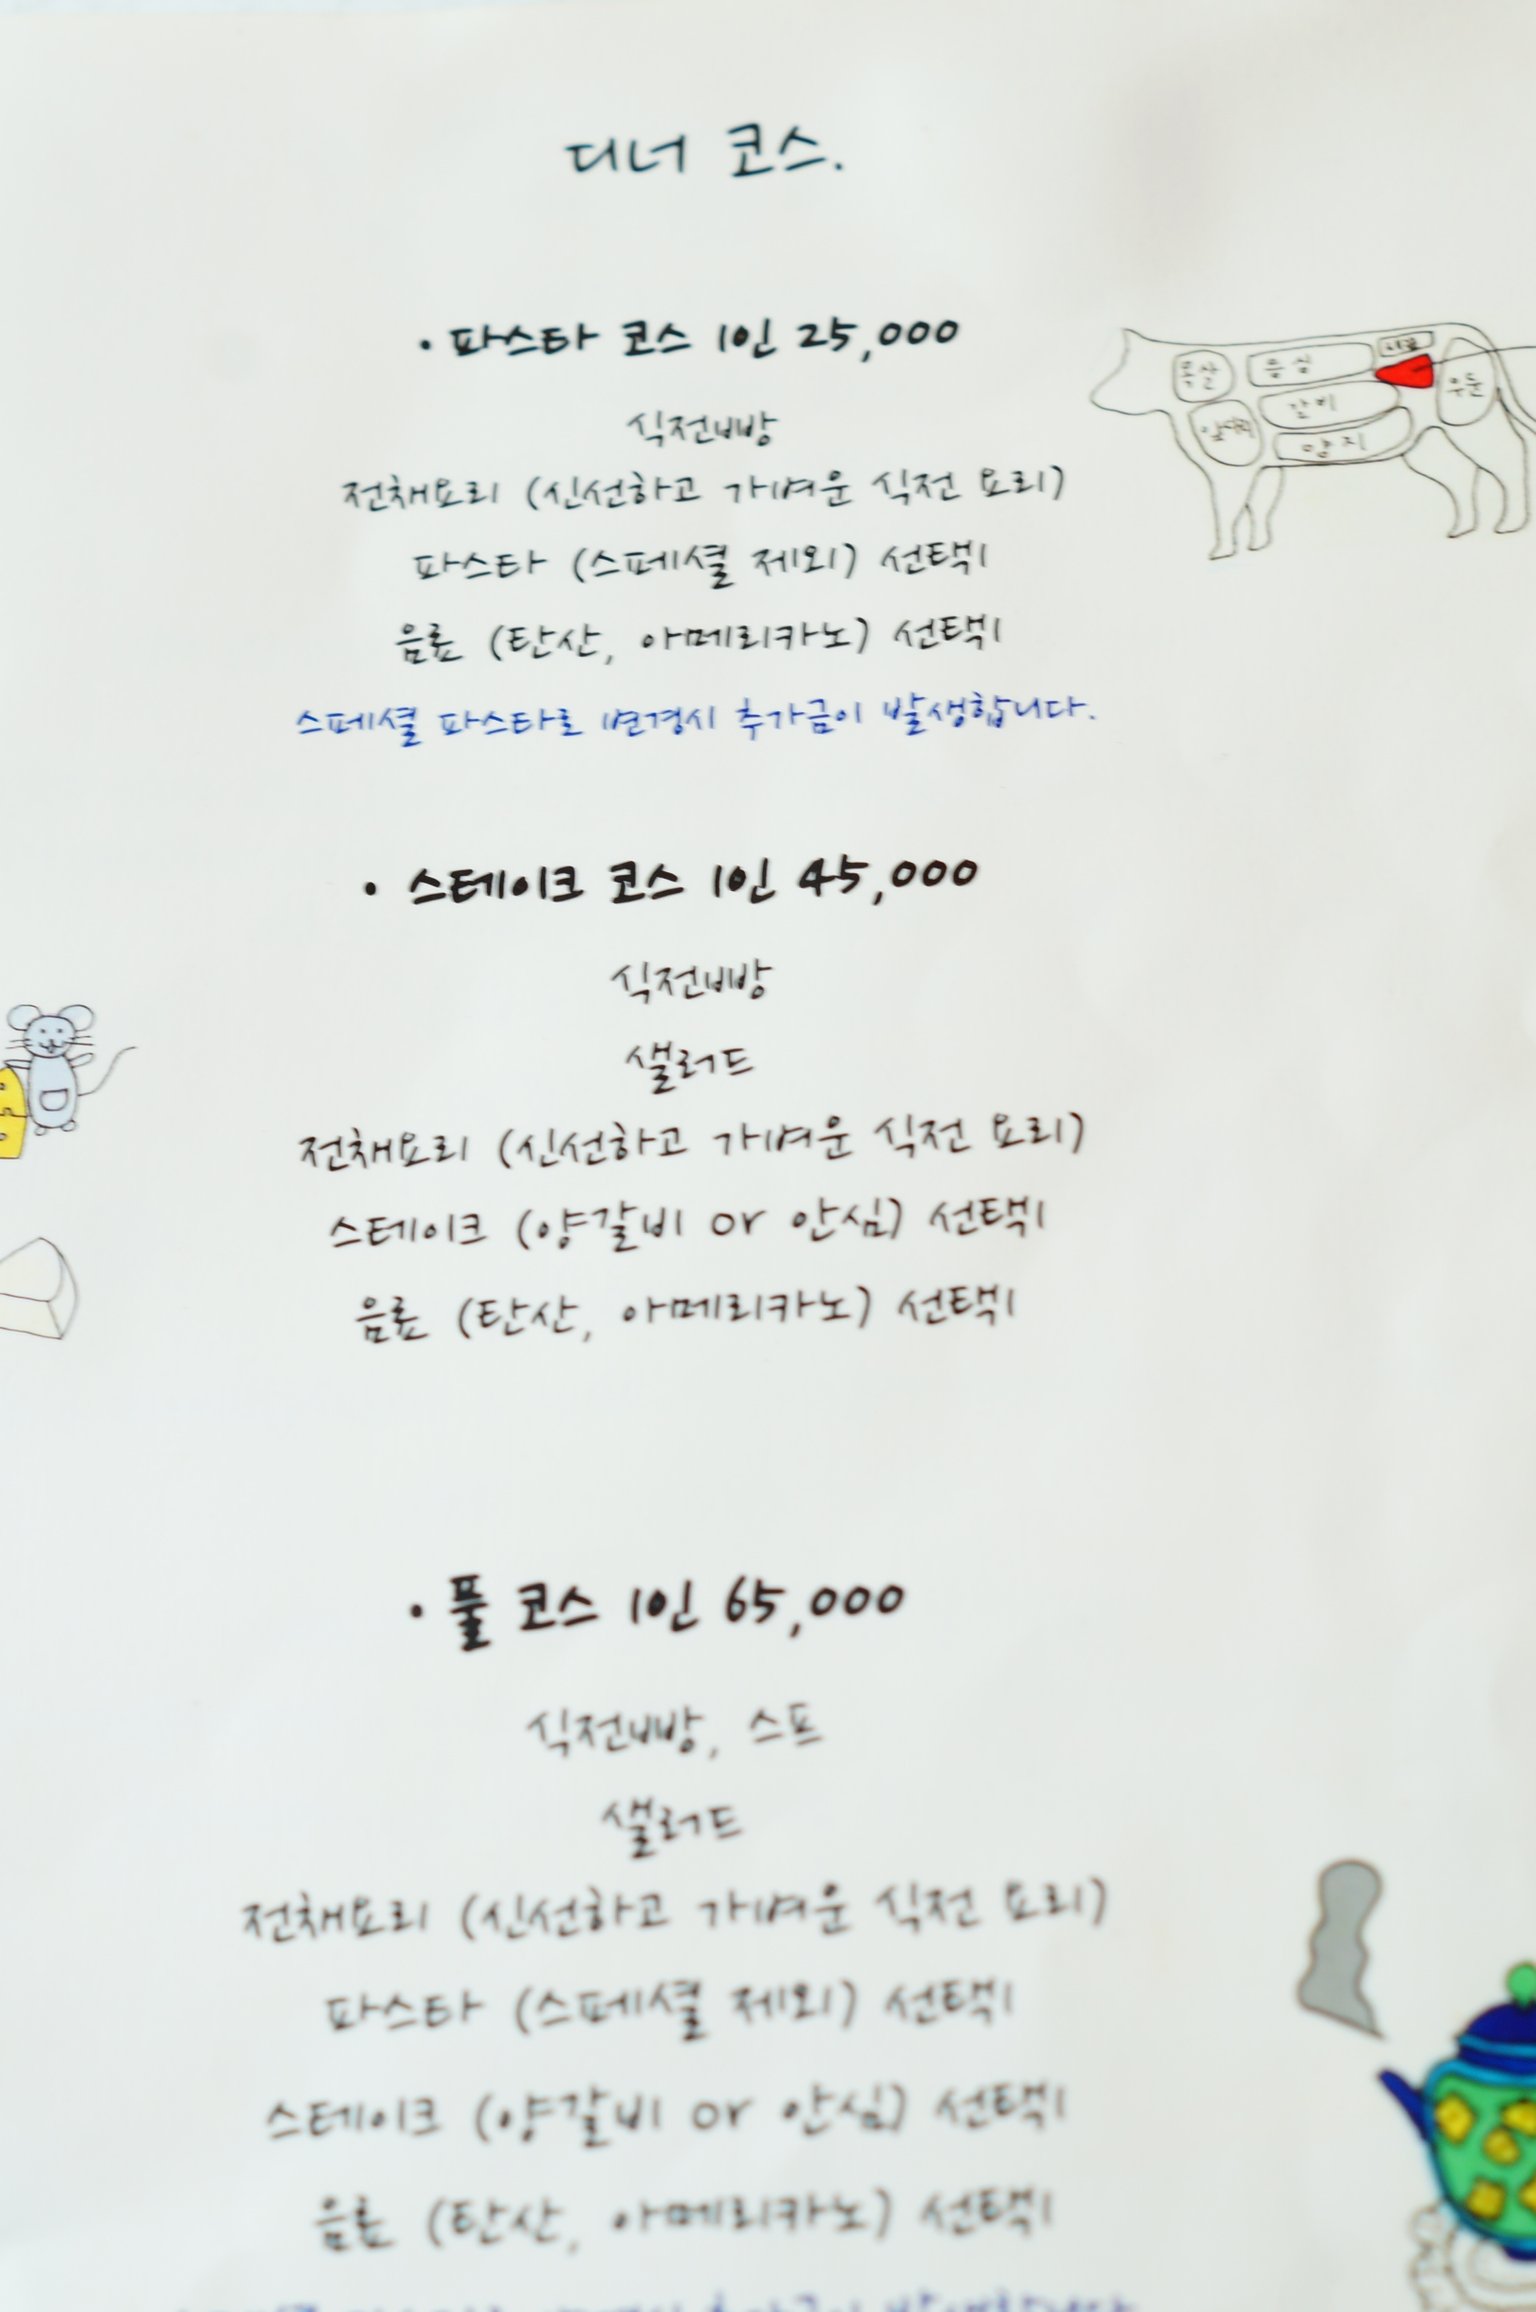 디너 코스.
• 파스타 코스 1인 25,000
식전빵
전채요리 (신선하고 가벼운 식전 요리)
파스타 (스페셜 제외) 선택1
음료 (탄산, 아메리카노) 선택1
스페셜 파스타로 변경시 추가금이 발생합니다.
목살
등심
갈비
앞다리
양지
우둔
• 스테이크 코스 1인 45,000
식전빵
샐러드
전채요리 (신선하고 가벼운 식전 요리)
스테이크 (양갈비 or 안심) 선택1
음료 (탄산, 아메리카노) 선택1
• 풀 코스 1인 65,000
식전빵, 스프
샐러드
전채요리 (신선하고 가벼운 식전 요리)
파스타 (스페셜 제외) 선택1
스테이크 (양갈비 or 안심) 선택1
음료 (탄산, 아메리카노) 선택1